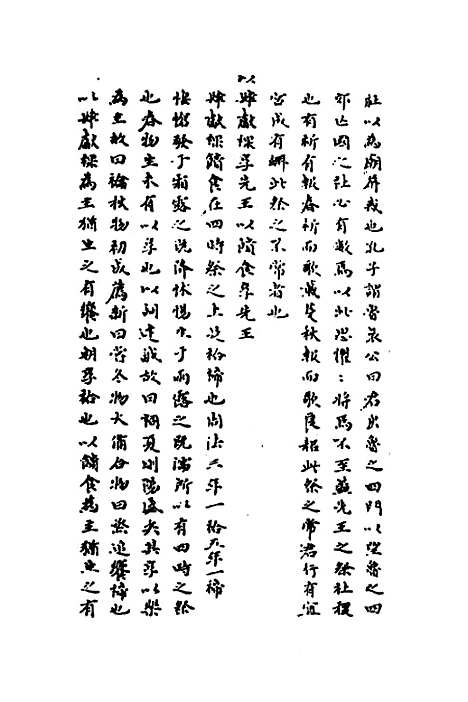 社以為廟屏戒也孔子謂魯哀公曰君出魯之四門以望魯之四
郊亡國之社必有數焉以此恐懼〻將焉不至蓋先王之祭社稷
也有祈有報春祈而歌載芟秋報而歌良耜此祭之常者行有宜
宮成有衅此祭之不常者也
以肆獻祼享先王以饋食享先王
肆獻祼饋食在四時祭之上是祫禘也周法三年一祫五年一禘
悽愴發于霜露之既降怵惕生于雨露之既濡所以有四時之祭
也春物生未有以享也以祠達誠故曰祠夏則陽盛矣其享以樂
為主故曰禴秋物初成薦新曰嘗冬物大備合物曰烝追饗禘也
以肆獻祼為主猶生之有饗也朝享祫也以饋食為主猶生之有